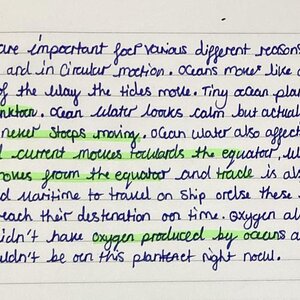 are important for various different reasons
and in Circular motion. Oceans move like
of the way the tides move. Tiny ocean plan
nkton. Ocean water looks calm but actual
never stops moving. Ocean water also affect
current moves towards the equator, w
moves from the equator and trade is als
d Maritime to travel on Ship orelse these s
each their destenation on time. Oxygen al
idn't have oxygen produced by oceans a
uldn't be on this planteret right now.